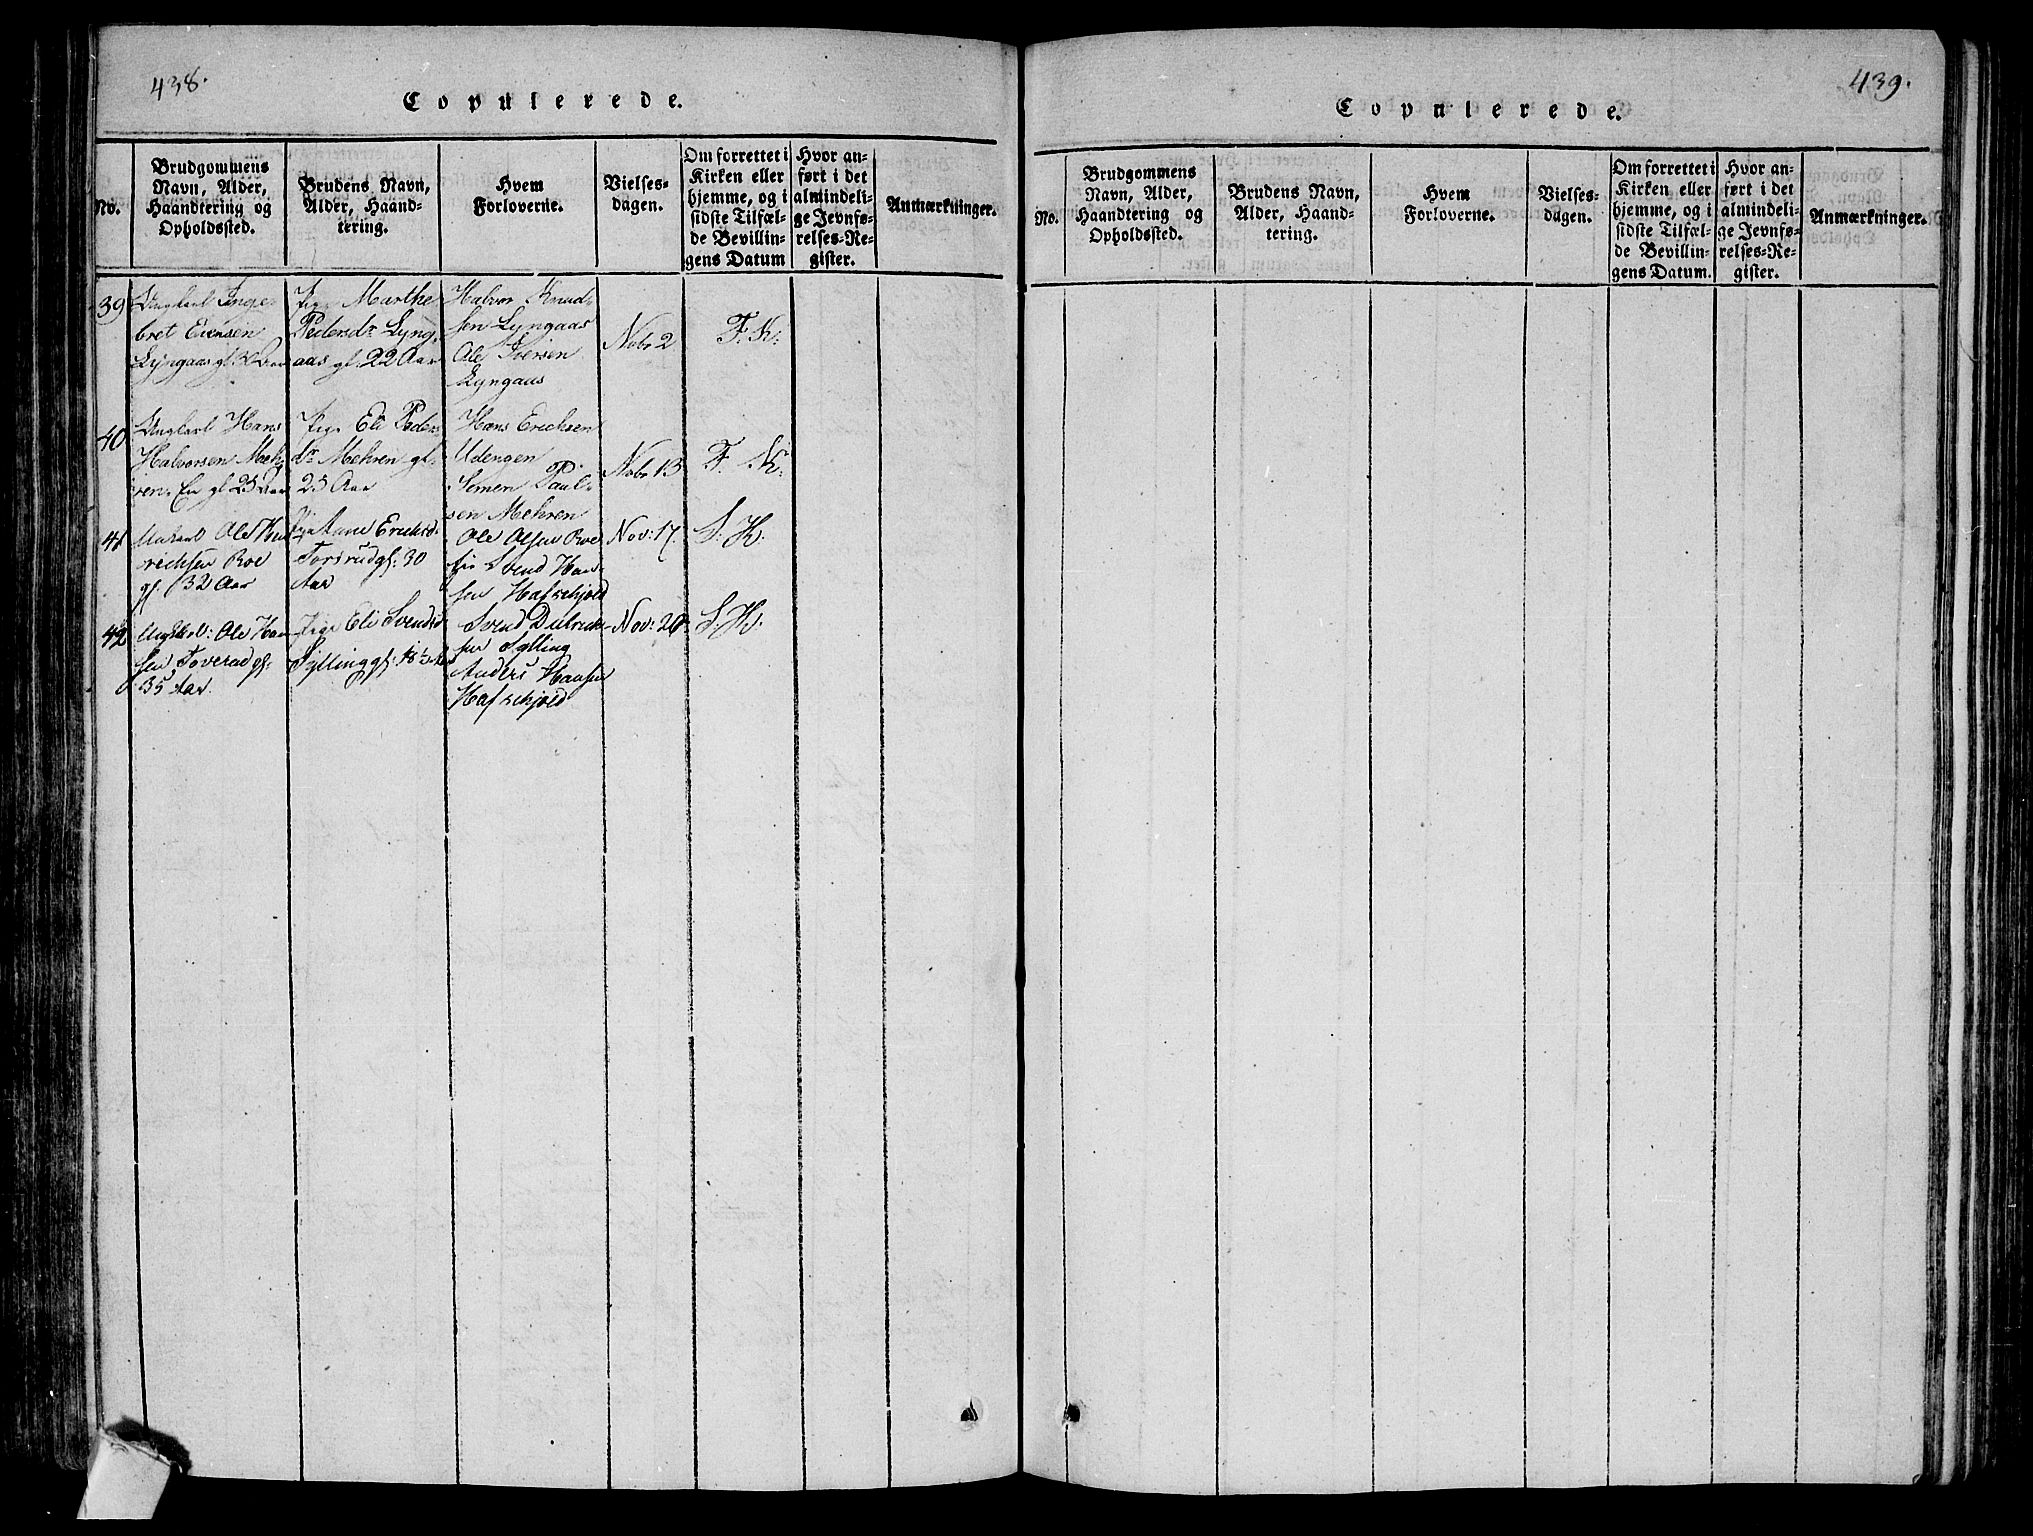 438.
Copulerede.
No.
Brudgommens
Navn, Alder,
Haandtering og
Opholdssted.
Brudens Navn,
Alder, Haand-
tering.
Hvem
Forloverne.
Vielses-
dagen.
Om forrettet i
Kirken eller
hjemme, og i
sidste Tilfæl-
de Bevillin-
gens Datum
Hvor an-
ført i det
almindeli-
ge Jevnfø-
relses-Re-
gister.
Anmærkninger.
39
Ungkarl Inge-
bret Evensen
Lyngaas gl: Aar
Pige Marthe
Pedersdr Lyng
aas gl: 22 Aar
Halvor Knud-
sen Lyngaas
Ole Iversen
Lyngaas
Nvbr 2
F. K:
40
Ungkarl Hans
Halvorsen Meh-
ren gl 25 Aar
Pige Eli Peders
Dr Mehren gl:
25 Aar
Hans Erichsen
Udengen
Simen Paul-
sen Mehren
Nvbr 13
F. K:
41
Ole
richsen Roe
gl. 32 Aar
Pige Anne Erichsd.
Torsrud gl: 30
Aar
Ole Olsen Roe
Svend Han-
sen Hafschjold
Nov: 17.
S: K:
42
Ungkl: Ole Han
sen Toverud gl:
35 Aar.
Pige Eli Svendsd
Sylling gl: 18½ Aar
Svend Didrich-
sen Sylling
Anders Hansen
Hafschjold
Nov: 20
S: K:
439.
Copulerede.
No.
Brudgommens
Navn, Alder,
Haandtering og
Opholdssted.
Brudens Navn,
Alder, Haand-
tering.
Hvem
Forloverne.
Vielses-
dagen.
Om forrettet i
Kirken eller
hjemme, og i
sidste Tilfæl-
de Bevillin-
gens Datum.
Hvor an-
ført i det
almindeli-
ge Jevnfø-
relses-Re-
gister.
Anmærkninger.